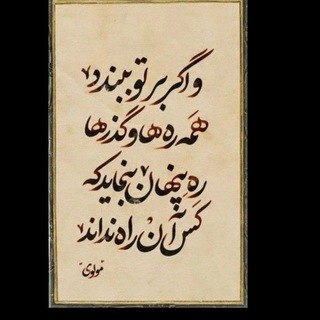 و اگر بر تو ببندد
همه ره ها و گذرها
ره پنهان بنماید که
کس آن راه نداند
مولوی